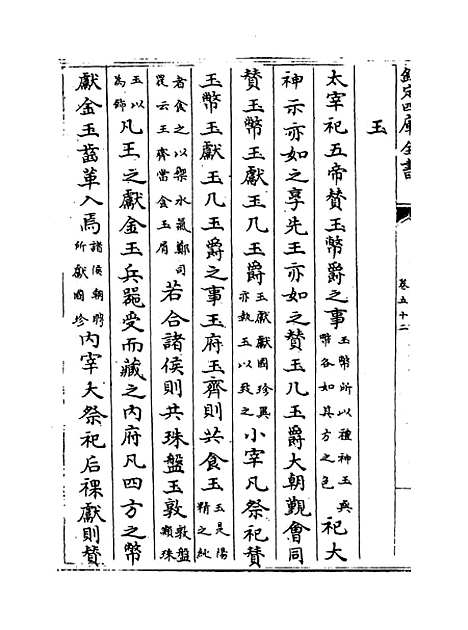 欽定四庫全書
卷五十二
玉
太宰祀五帝贊玉幣爵之事玉幣所以種神玉與幣各如其方之色祀大
神示亦如之享先王亦如之贊玉几玉爵大朝覲會同
贊玉幣玉獻玉几玉爵玉獻獻國珍異亦執玉以致之小宰凡祭祀贊
玉幣玉獻玉几玉爵之事玉府玉齊則共食玉玉是陽精之純
者食之以禦水氣鄭司農云玉齊當食玉屑若合諸侯則共珠盤玉敦敦盤類珠
玉以為飾凡王之獻金玉兵器受而藏之內府凡四方之幣
獻金玉齒革入焉諸侯朝聘所獻國珍內宰大祭祀后祼獻則贊